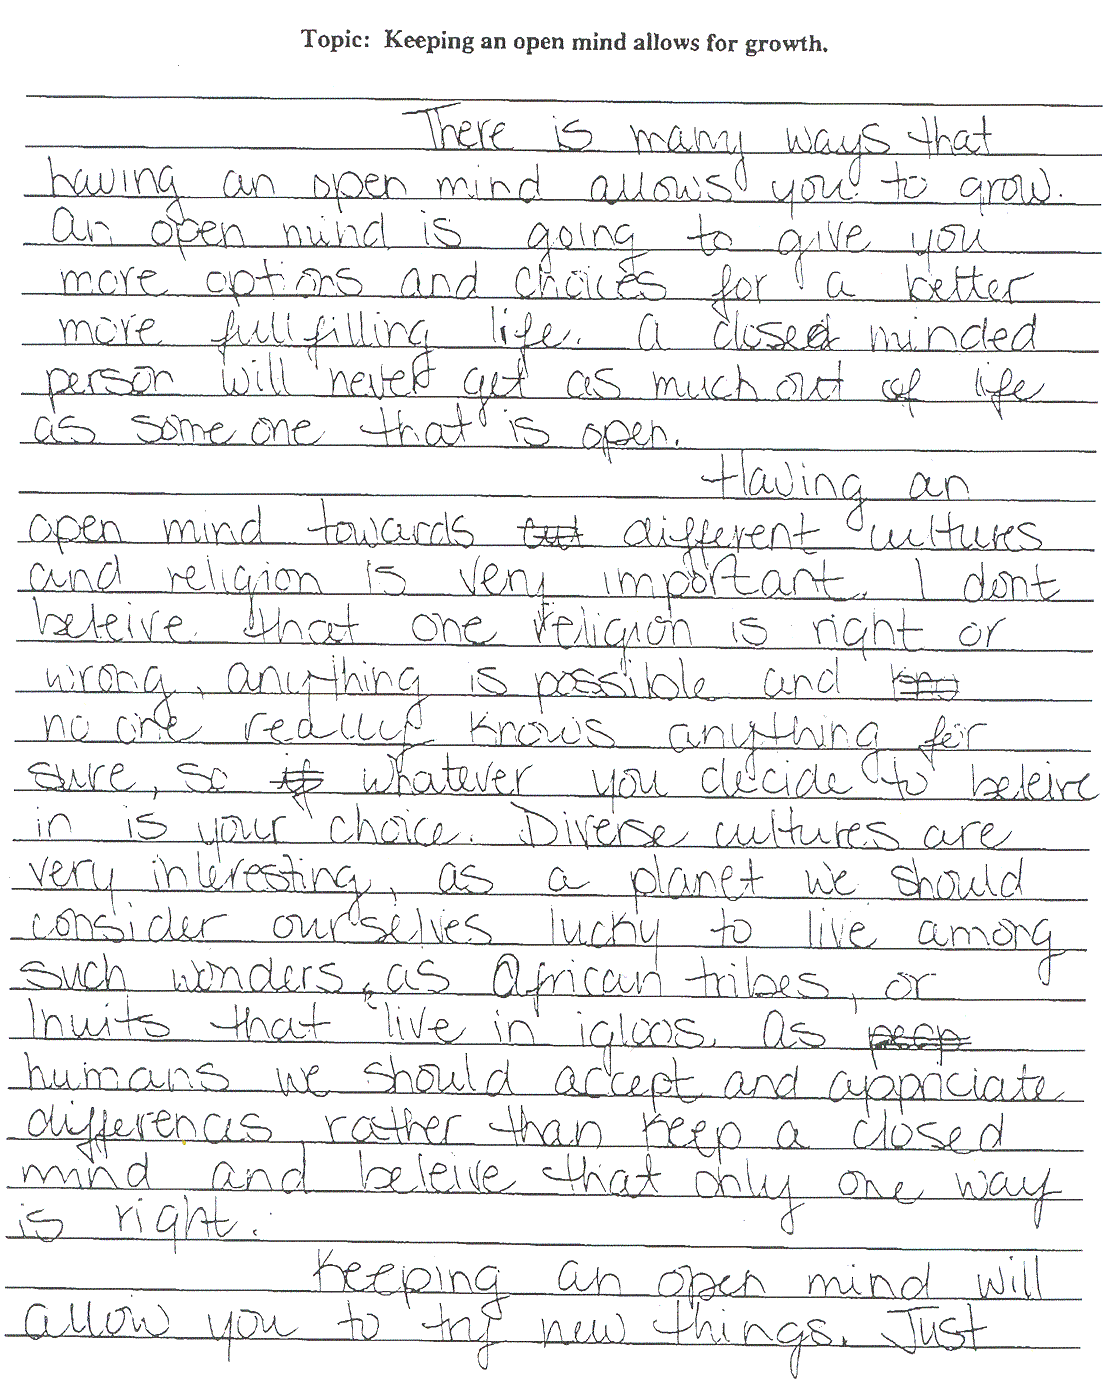 Topic: Keeping an open mind allows for growth.
There is many ways that
having an open mind allows you to grow.
An open mind is going to give you
more options and choices for a better
more fullfilling life. A closed minded
person will never get as much out of life
as some one that is open.
Having an
open mind towards different cultures
and religion is very important. I dont
beleive that one religion is right or
wrong, anything is possible and
no one really knows anything for
sure, so whatever you decide to beleive
in is your choice. Diverse cultures are
very interesting, as a planet we should
consider ourselves lucky to live among
such wonders, as African tribes, or
Inuits that live in igloos. As
humans we should accept and appriciate
differences, rather than keep a closed
mind and beleive that only one way
is right.
Keeping an open mind will
allow you to try new things. Just